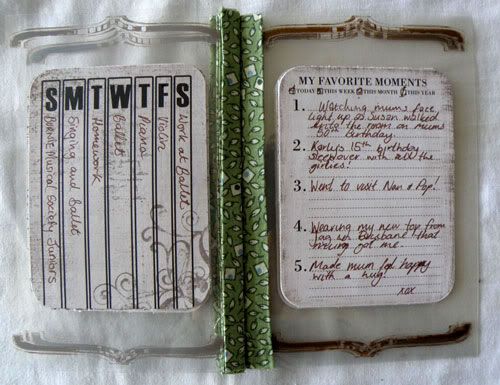 S M T W T F S
Burnie Musical Society Juniors
Singing and Ballet
Homework
Ballet
Piano
Violin
Work at Ballet
MY FAVORITE MOMENTS
TODAY THIS WEEK THIS MONTH THIS YEAR
1. Watching mums face
light up as Susan walked
into the room on mums
50th birthday.
2. Karly's 15th birthday
sleepover with all the
girlies!
3. Went to visit Nan & Pop!
4. Wearing my new top from
Jag in that
got me.
5. Made mum feel happy
with a hug.
xox